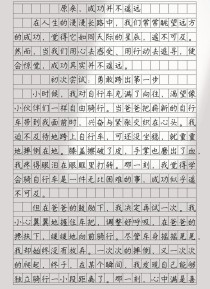 原来，成功并不遥远
在人生的漫漫长路中，我们常常眺望远方
的成功，觉得它如同天际的星辰，遥不可及。
然而，当我们用心去感受，用行动去追寻，便
会惊觉，成功其实并不遥远。
初次尝试，勇敢跨出第一步
小时候，我对自行车充满了向往，渴望像
小伙伴们一样自由骑行。当爸爸把崭新的自行
车带到我面前时，兴奋与紧张交织在心头。我
迫不及待地跨上自行车，可还没坐稳，就重重
地摔倒在地。膝盖擦破了皮，手掌也磨出了血，
我疼得眼泪在眼眶里打转。那一刻，我觉得学
会骑自行车是一件无比困难的事，成功似乎遥
不可及。
但在爸爸的鼓励下，我决定再试一次。我
小心翼翼地握住车把，调整好呼吸，在爸爸的
搀扶下，缓缓地向前骑行。尽管车身摇摇晃晃，
我却始终没有放弃。一次次的摔倒，又一次次
的爬起，终于，在某个瞬间，我发现自己能够
独立骑行一小段距离了。那一刻，心中满是喜